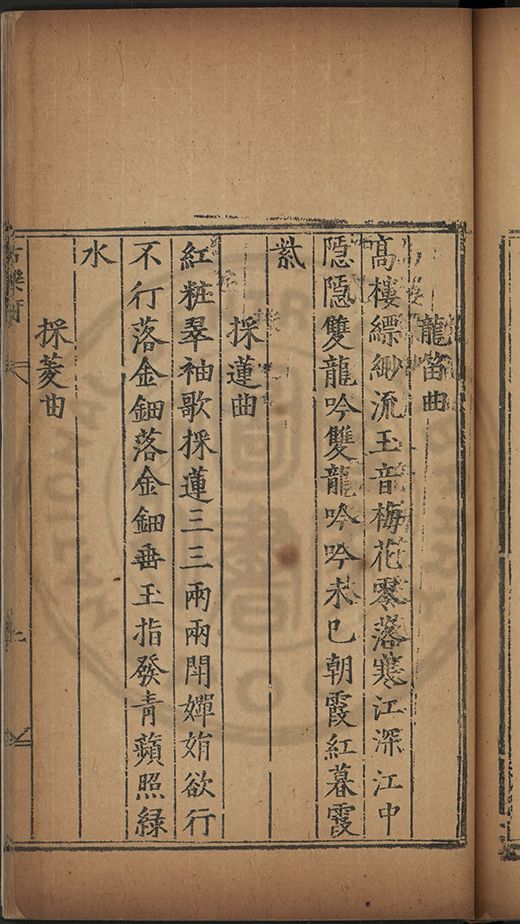 龍笛曲
高樓縹緲流玉音梅花零落寒江深江中
隱隱雙龍吟雙龍吟吟未已朝霞紅暮霞
紫
採蓮曲
紅粧翠袖歌採蓮三三兩兩鬥嬋娟欲行
不行落金鈿落金鈿垂玉指發青蘋照綠
水
採菱曲